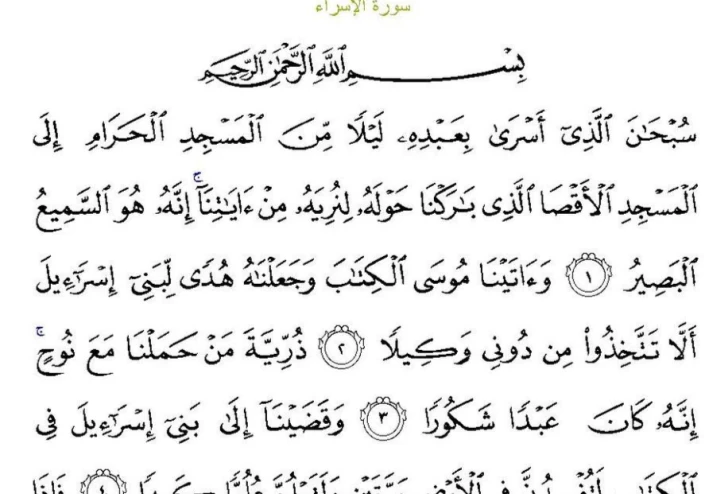 سورة الإسراء
بِسْمِ ٱللَّهِ ٱلرَّحْمَٰنِ ٱلرَّحِيمِ
سُبْحَٰنَ ٱلَّذِىٓ أَسْرَىٰ بِعَبْدِهِۦ لَيْلًا مِّنَ ٱلْمَسْجِدِ ٱلْحَرَامِ إِلَى
ٱلْمَسْجِدِ ٱلْأَقْصَا ٱلَّذِى بَٰرَكْنَا حَوْلَهُۥ لِنُرِيَهُۥ مِنْ ءَايَٰتِنَآ ۚ إِنَّهُۥ هُوَ ٱلسَّمِيعُ
ٱلْبَصِيرُ ١ وَءَاتَيْنَا مُوسَى ٱلْكِتَٰبَ وَجَعَلْنَٰهُ هُدًى لِّبَنِىٓ إِسْرَٰٓءِيلَ
أَلَّا تَتَّخِذُوا۟ مِن دُونِى وَكِيلًا ٢ ذُرِّيَّةَ مَنْ حَمَلْنَا مَعَ نُوحٍ ۚ
إِنَّهُۥ كَانَ عَبْدًا شَكُورًا ٣ وَقَضَيْنَآ إِلَىٰ بَنِىٓ إِسْرَٰٓءِيلَ فِى
ٱلْكِتَٰبِ لَتُفْسِدُنَّ فِى ٱلْأَرْضِ مَرَّتَيْنِ وَلَتَعْلُنَّ عُلُوًّا كَبِيرًا ٤ فَإِذَا